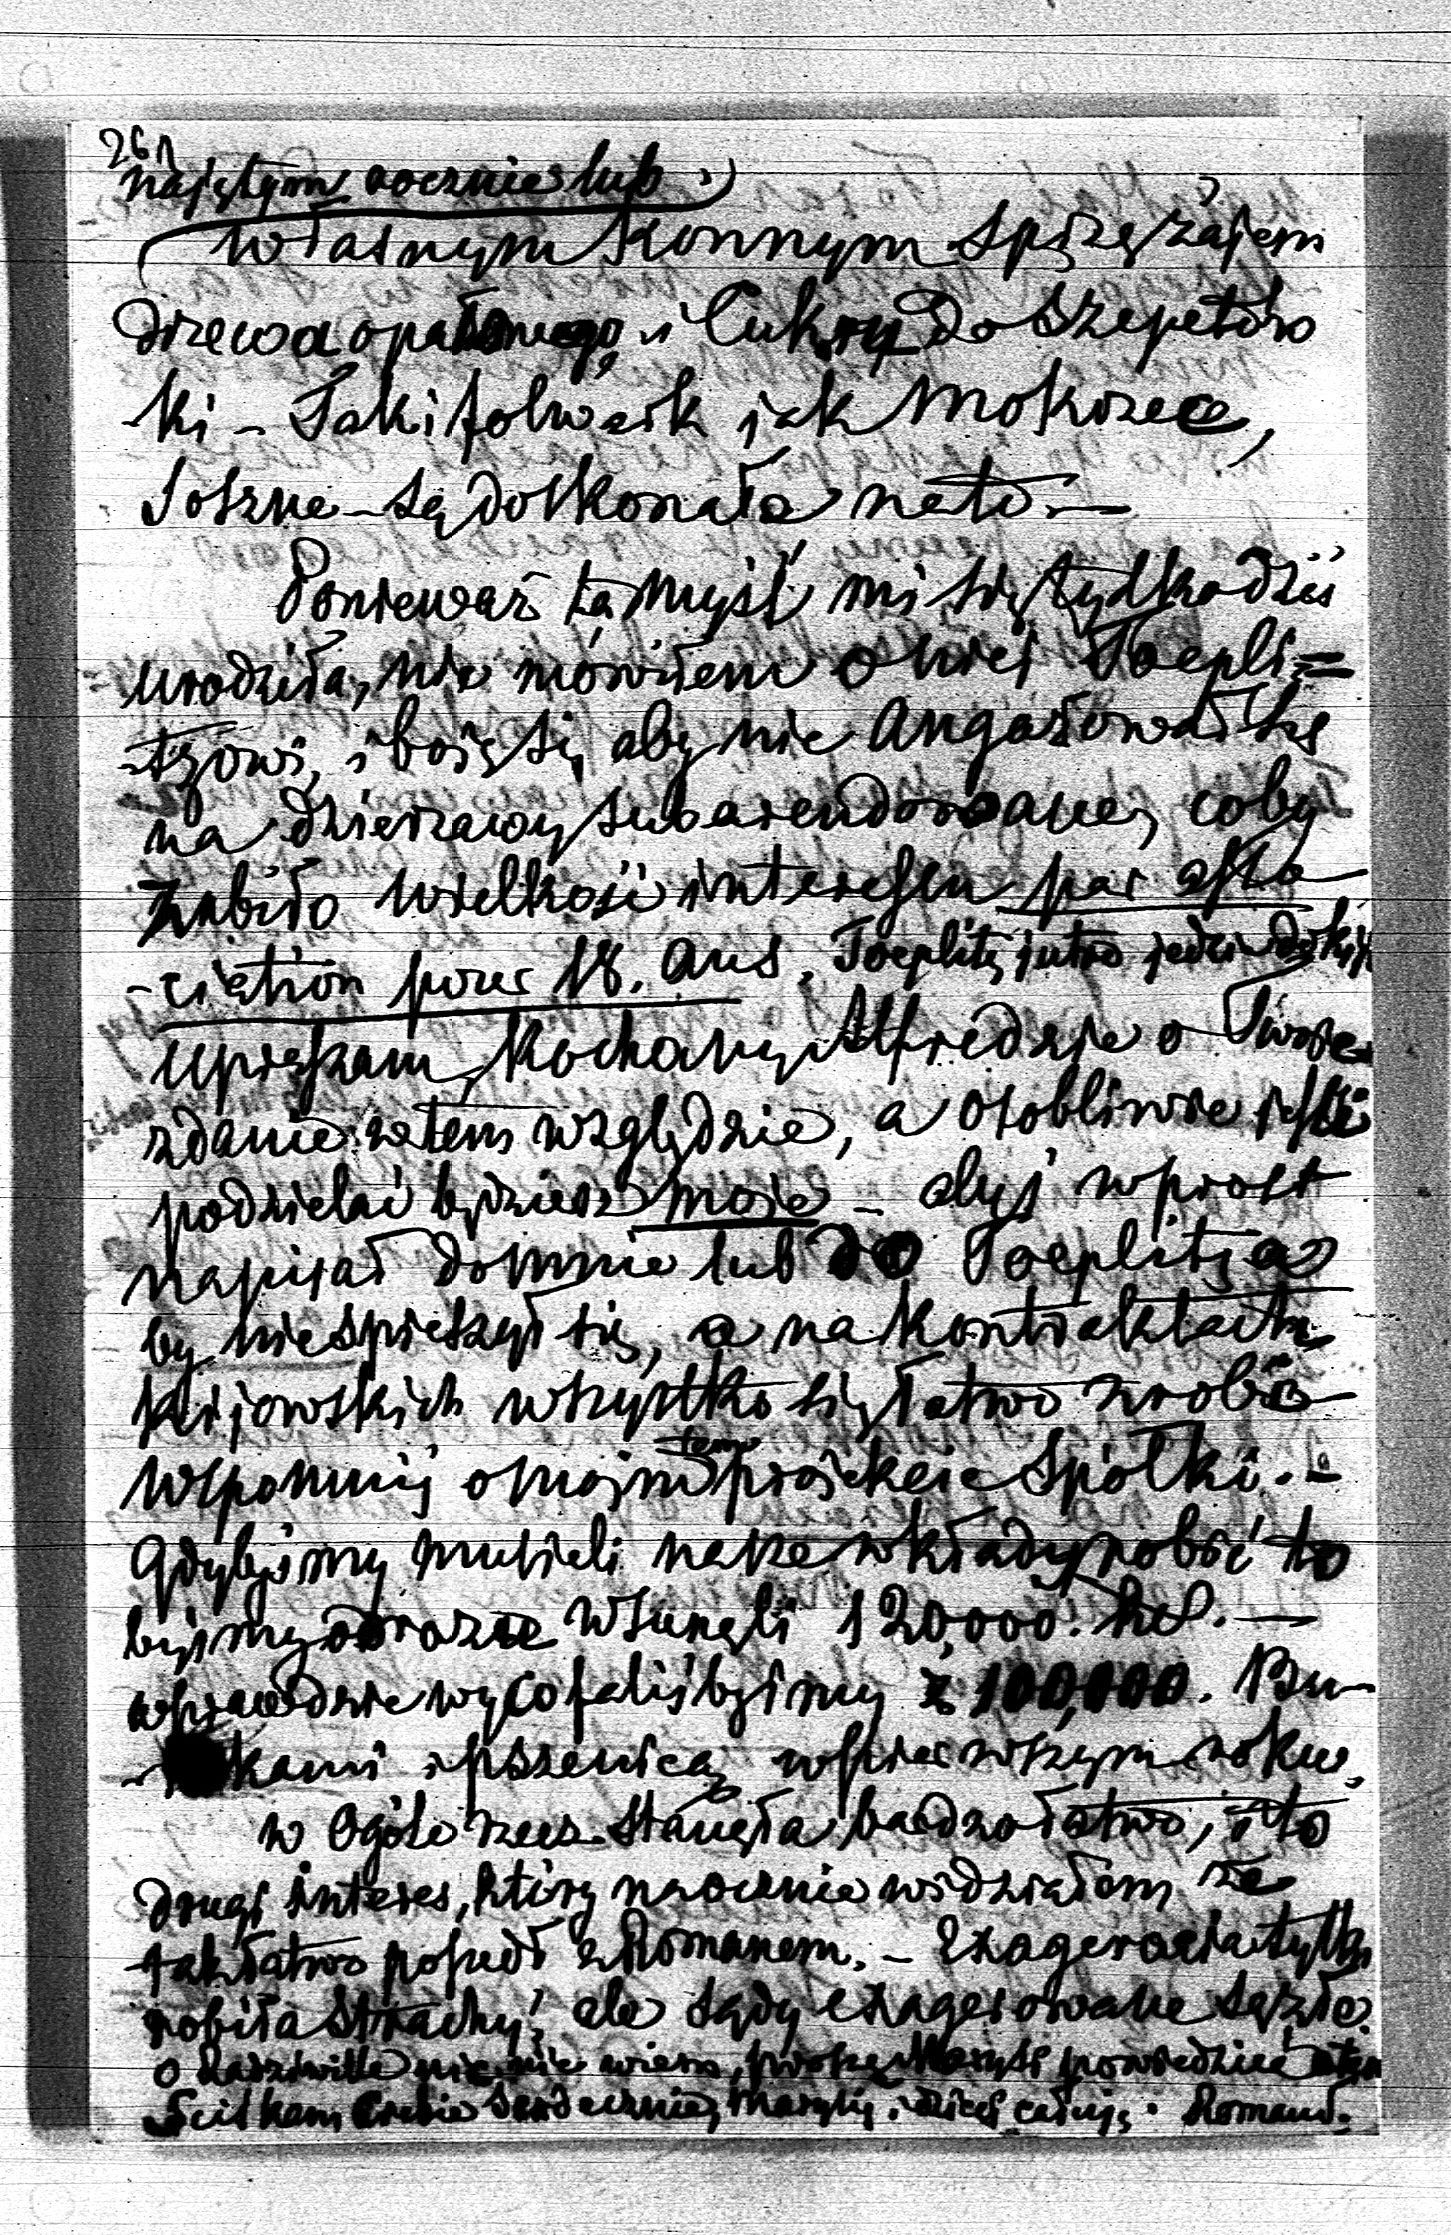 261
najętym rocznie lub
własnym konnym sprzężajem
drzewa opałowego, i Cukry do Szepetów
-ki - Taki folwark jak Mokrzec,
Soszne - są doskonałe na to. —
Ponieważ ta myśl mi się tylko dziś
urodziła, nie mówiłem o niej Toepli=
-tzowi, i boję się aby nie angażował się
na dzierżawy subarendowane, coby
zabiło wielkość interessu par asso
-ciation pour 18. ans. Toeplitz jutro jedzie do
upraszam kochany Alfredzie o Twoje
zdanie w tem względzie, a osobliwie jeśli
podzielać będziesz moje - abyś wprost
napisał do mnie lub do Toeplitza
by nie spieszył się, a na kontraktach
Kijowskich wszystko się łatwo zrobi
wspomnij o mojm temp projekcie Spółki. -
Gdybyśmy musieli nasze wkłady robić to
byśmy od razu wsunęli 120,000. rs. —
wprawdzie wycofalibyśmy z 100,000. Bu-
-rakami i pszenicą w pierwszym roku.
w Ogóle rzecz stanęła bardzo łatwo, i to
drugi interes, który naocznie widziałem że
tak łatwo poszedł z Romanem. - Exageracia tylko
robiła strachy, ale sądy exagerowane są złe.
o Radziwille nic nie wiem, proszę Marysi powiedzieć o tem
Ściskam Ciebie serdecznie, Marylę i dzieci całuję. Roman.